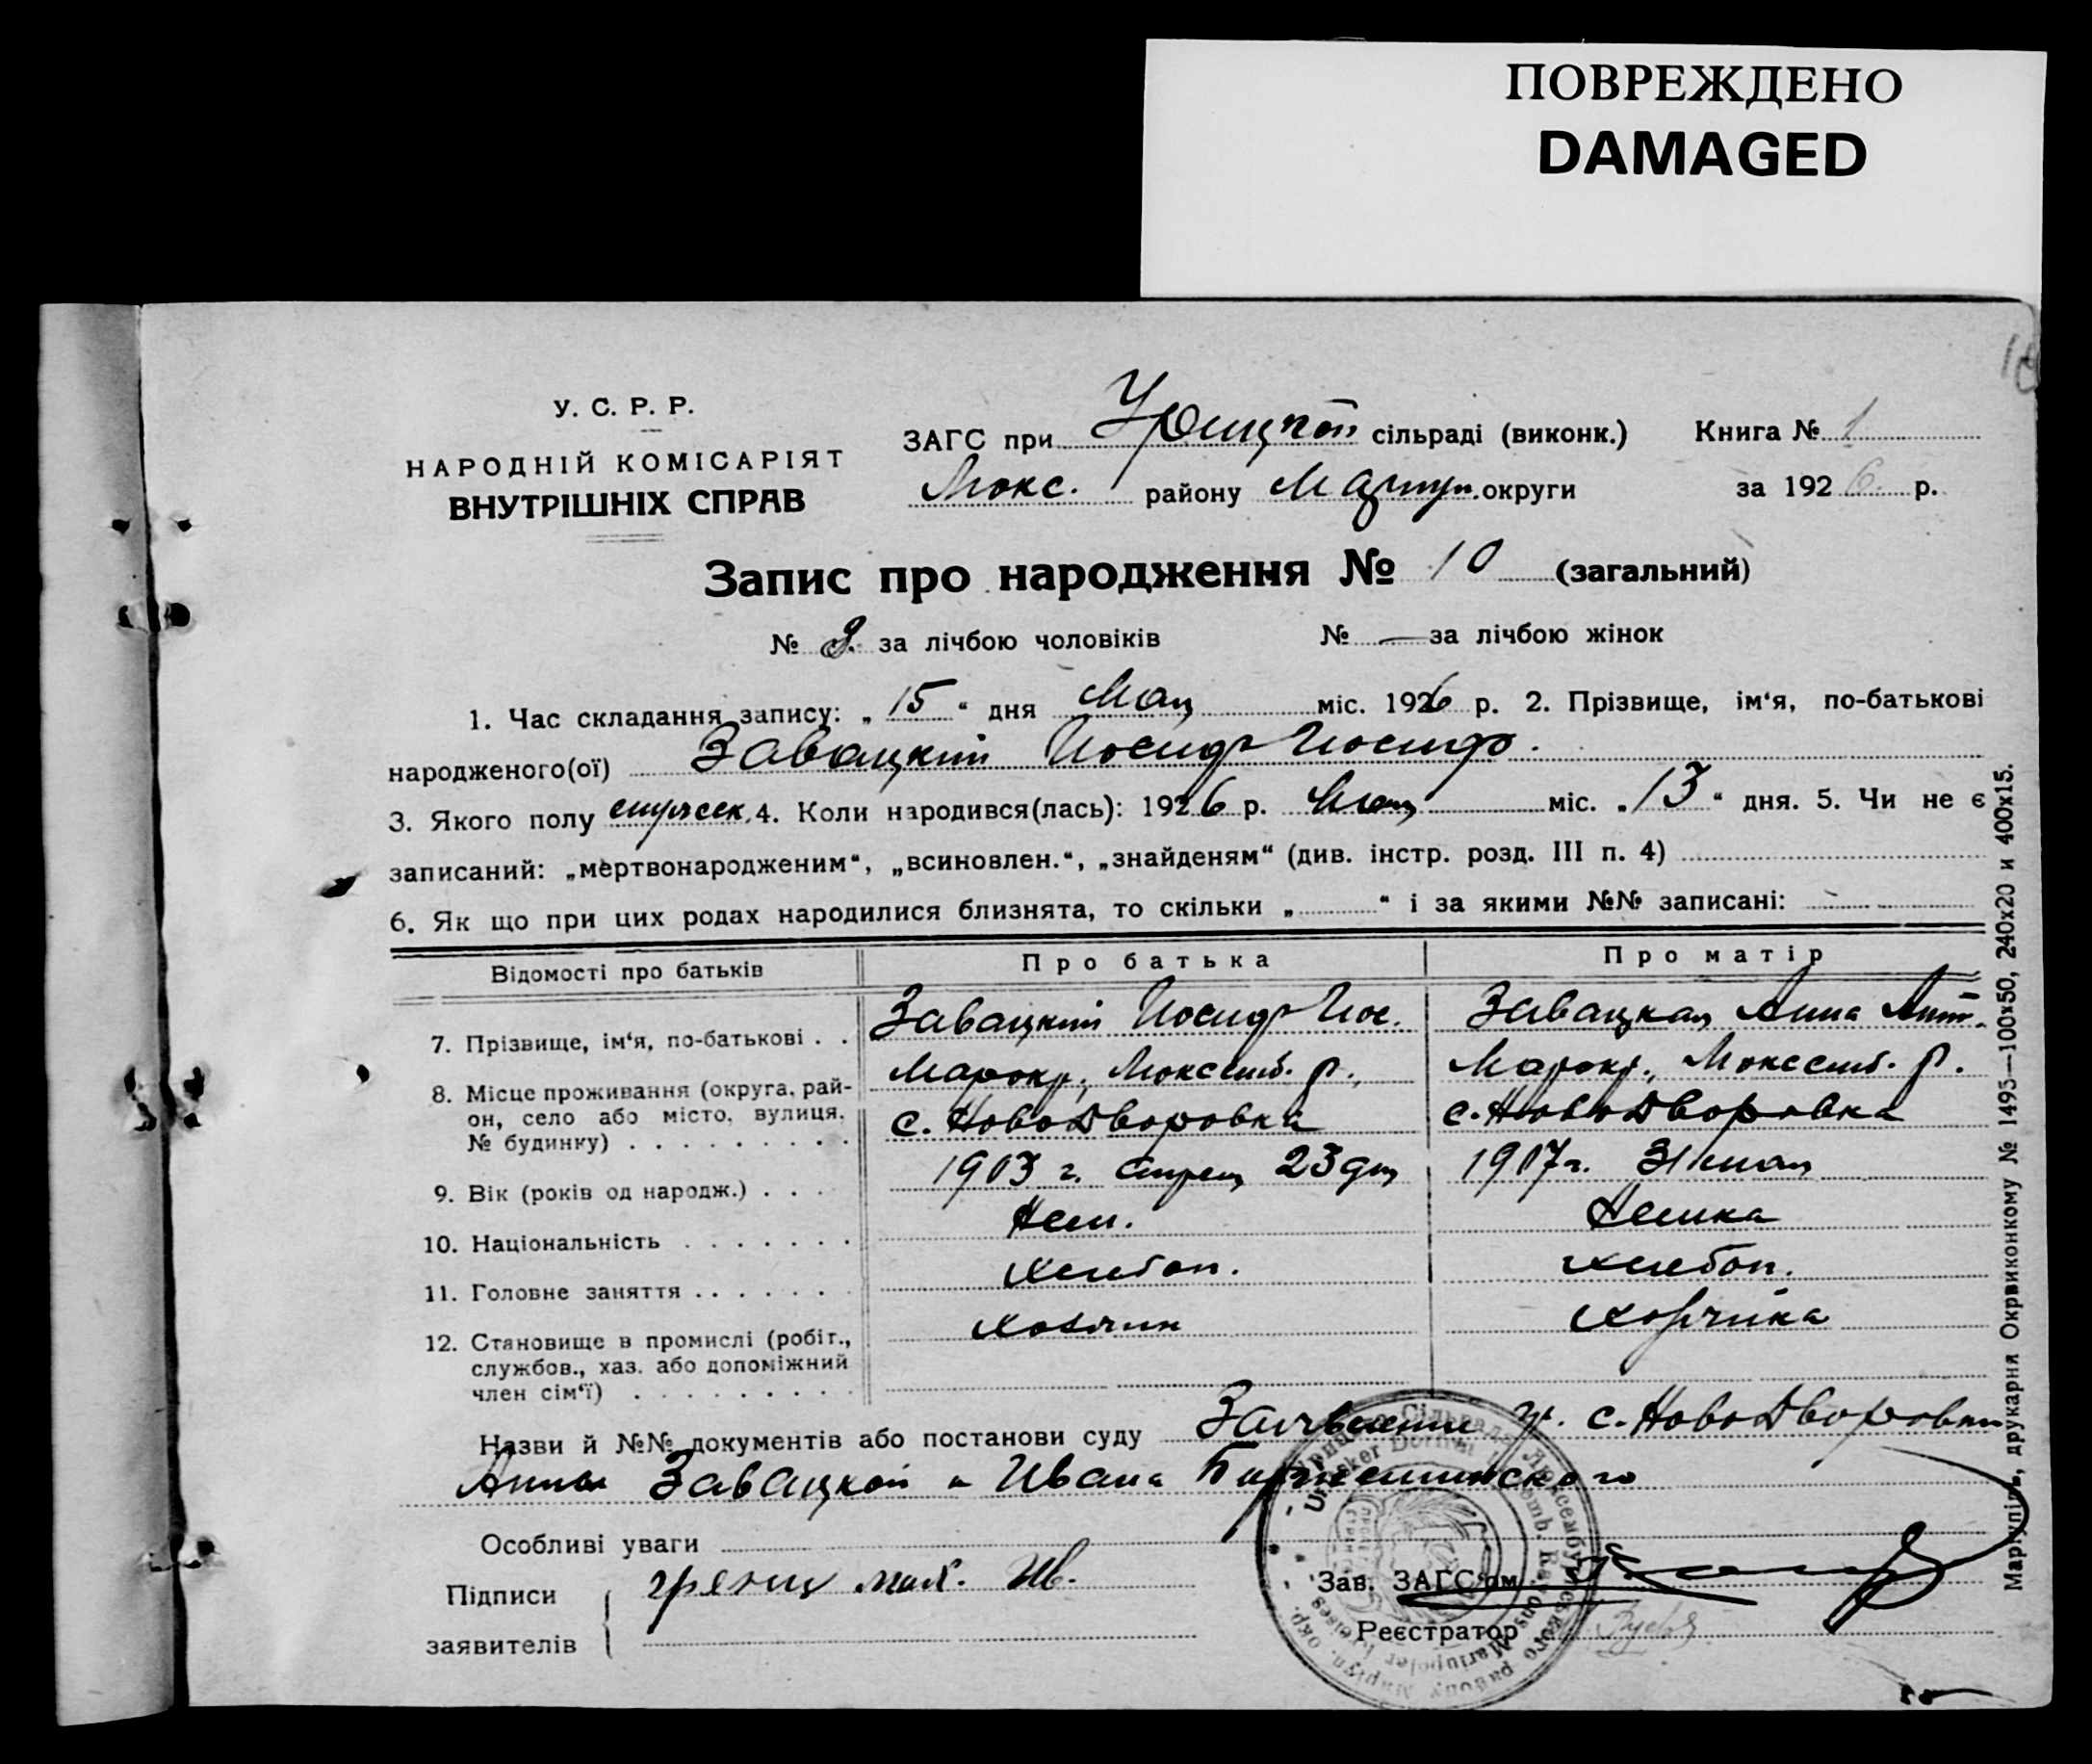 ПОВРЕЖДЕНО
DAMAGED
У. С. Р. Р.
НАРОДНІЙ КОМІСАРІЯТ
ВНУТРІШНІХ СПРАВ
ЗАГС при Урицкой сільраді (виконк.) Книга № 1
Люкс. району Мариуп. округи за 1926 р.
Запис про народження № 10 (загальний)
№ за лічбою чоловіків № — за лічбою жінок
1. Час складання запису: „15“ дня Мая міс. 1926 р. 2. Прізвище, ім‘я, по-батькові
народженого(ої) Завацкий Иосиф Иосифо.
3. Якого полу 4. Коли народився(лась): 1926 р. Мая міс. „13“ дня. 5. Чи не є
записаний: „мертвонародженим“, „всиновлен.“, „знайденям“ (див. інстр. розд. III п. 4)
6. Як що при цих родах народилися близнята, то скільки „ “ і за якими №№ записані:
Відомості про батьків Про батька Про матір
7. Прізвище, ім‘я, по-батькові . . Завацкий Иосиф Иос. Завацкая Анна Ант.
8. Місце проживання (округа, рай-
он, село або місто, вулиця,
№ будинку) Марокр., Люксемб. р., Марокр., Люксемб. р.
с. НовоДворовка с. НовоДворовка
9. Вік (років од народж.) . . . 1903 г. 23 дня 1907 г. 31 мая
10. Національність Нем. Немка
11. Головне заняття Хлебоп. хлебоп.
12. Становище в промислі (робіт.,
службов., хаз. або допоміжний
член сім‘ї) Хозяин Хозяйка
Назви й №№ документів або постанови суду Заявление гр. с. НовоДворовки
Анны Завацкой и Ивана
Особливі уваги
Підписи
заявителів
Зав. ЗАГС‘ом
Реєстратор
Маріупіль, друкарня Окрвиконкому № 1495—100×50, 240×20 и 400×15.